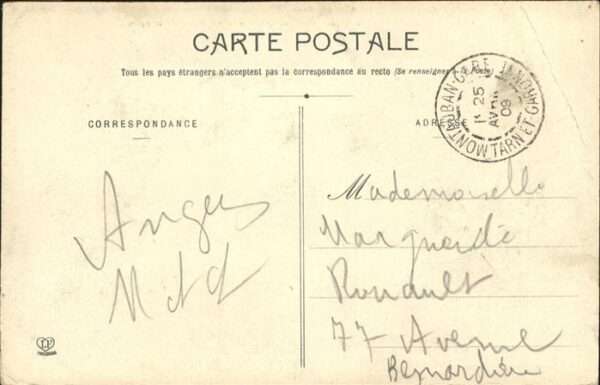 CARTE POSTALE
Tous les pays étrangers n'acceptent pas la correspondance au recto (Se renseigner à la Poste)
CORRESPONDANCE
ADRESSE
MONTAUBAN-GARE TARN-ET-GARONNE
25
AVRIL
09
Angers
Mademoiselle
Marguerite
Rouault
77 Avenue